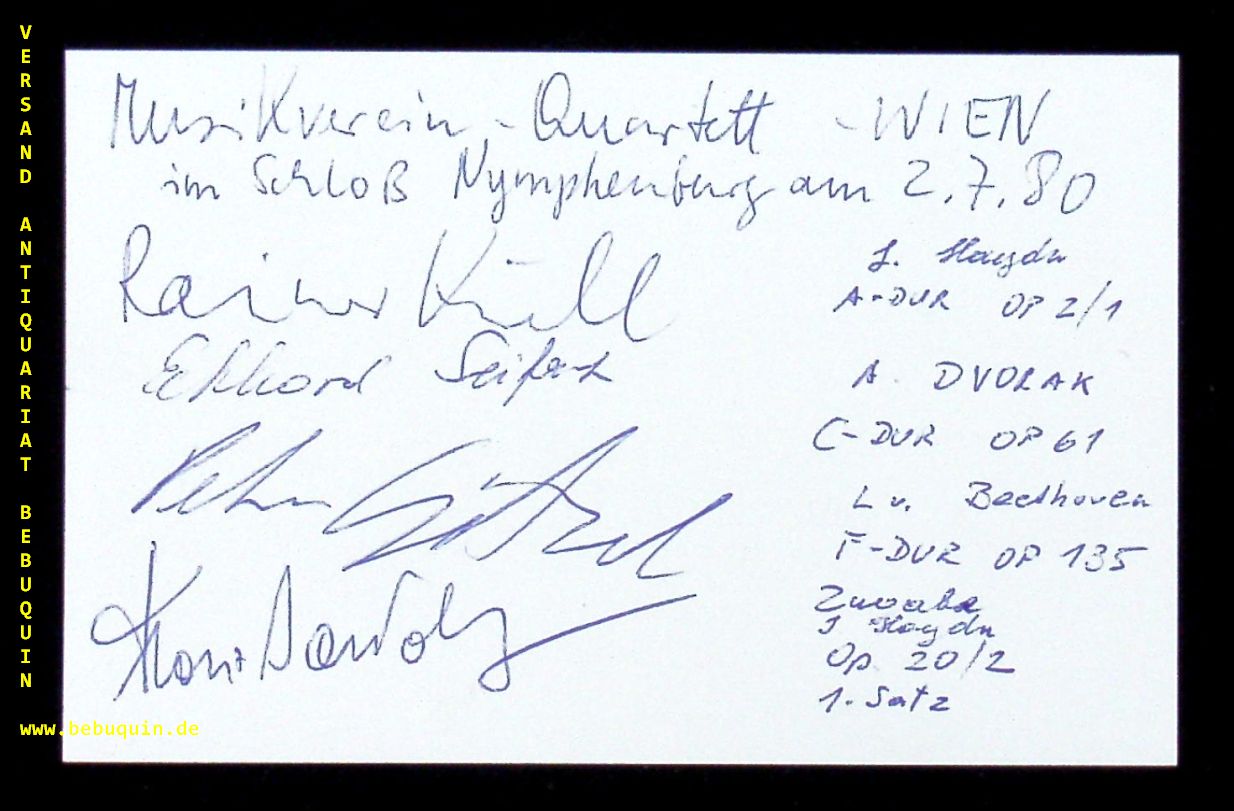 Musikverein - Quartett - WIEN
im Schloß Nymphenburg am 2.7.80
Rainer Küchl
Ekkard Seifert
Peter Götzel
Franz Bartolomey
J. Haydn
A-DUR OP 2/1
A. DVORAK
C-DUR OP 61
L v. Beethoven
F-DUR OP 135
Zugabe
J Haydn
Op. 20/2
1. Satz
VERSAND ANTIQUARIAT BEBUQUIN
www.bebuquin.de